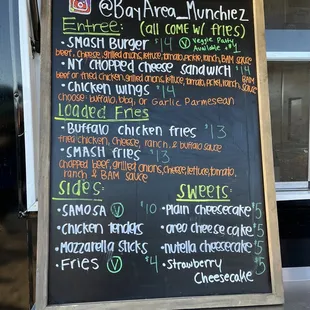 @BayArea_Munchiez
Entree: (all come w/ fries)
• Smash Burger $14 Ⓥ Veggie Patty Available +$1
beef, cheese, grilled onions, lettuce, tomato, pickle, ranch, & BAM sauce
• NY chopped cheese sandwich $14
beef or fried chicken, grilled onions, lettuce, tomato, pickle, ranch & BAM sauce
• chicken wings $14
choose: buffalo, bbq, or Garlic Parmesean
Loaded Fries
• Buffalo chicken fries $13
fried chicken, cheese, ranch, & buffalo sauce
• Smash fries $13
chopped beef, grilled onions, cheese, lettuce, tomato,
ranch & BAM sauce
Sides: Sweets:
• Samosa Ⓥ $10 • Plain cheesecake $5
• Chicken tenders • oreo cheesecake $5
• Mozzarella sticks • nutella cheesecake $5
Fries Ⓥ $4 • Strawberry
Cheesecake $5